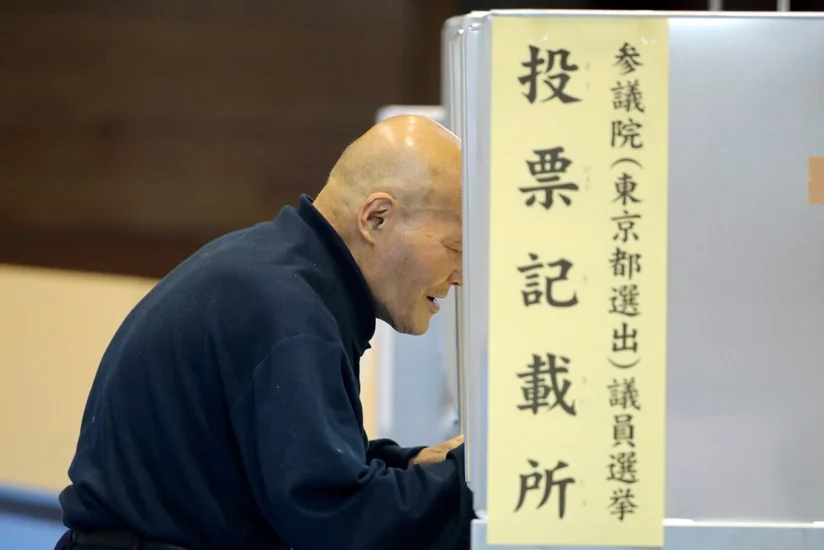 参議院(東京都選出)議員選挙
投票記載所